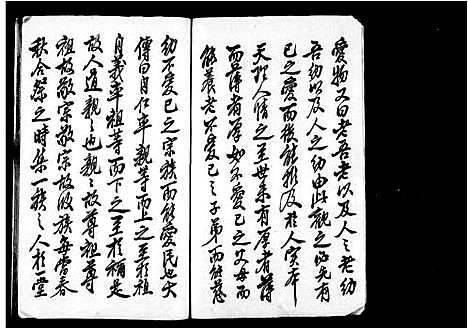 愛物又曰老吾老以及人之老幼
吾幼以及人之幼由此觀之必先有
己之愛而後能推及人宗本
天理人情之至世未有厚者薄
而薄者厚如不愛己之父母而
能養老不愛己之子弟而能慈
幼不愛己之宗族而能愛民也夫
傳曰自仁率親等而上之至於祖
自義率祖等而下之至於禰是
故人道親親也親親故尊祖尊
祖故敬宗敬宗故收族每當春
秋合祭之時集一族之人於堂